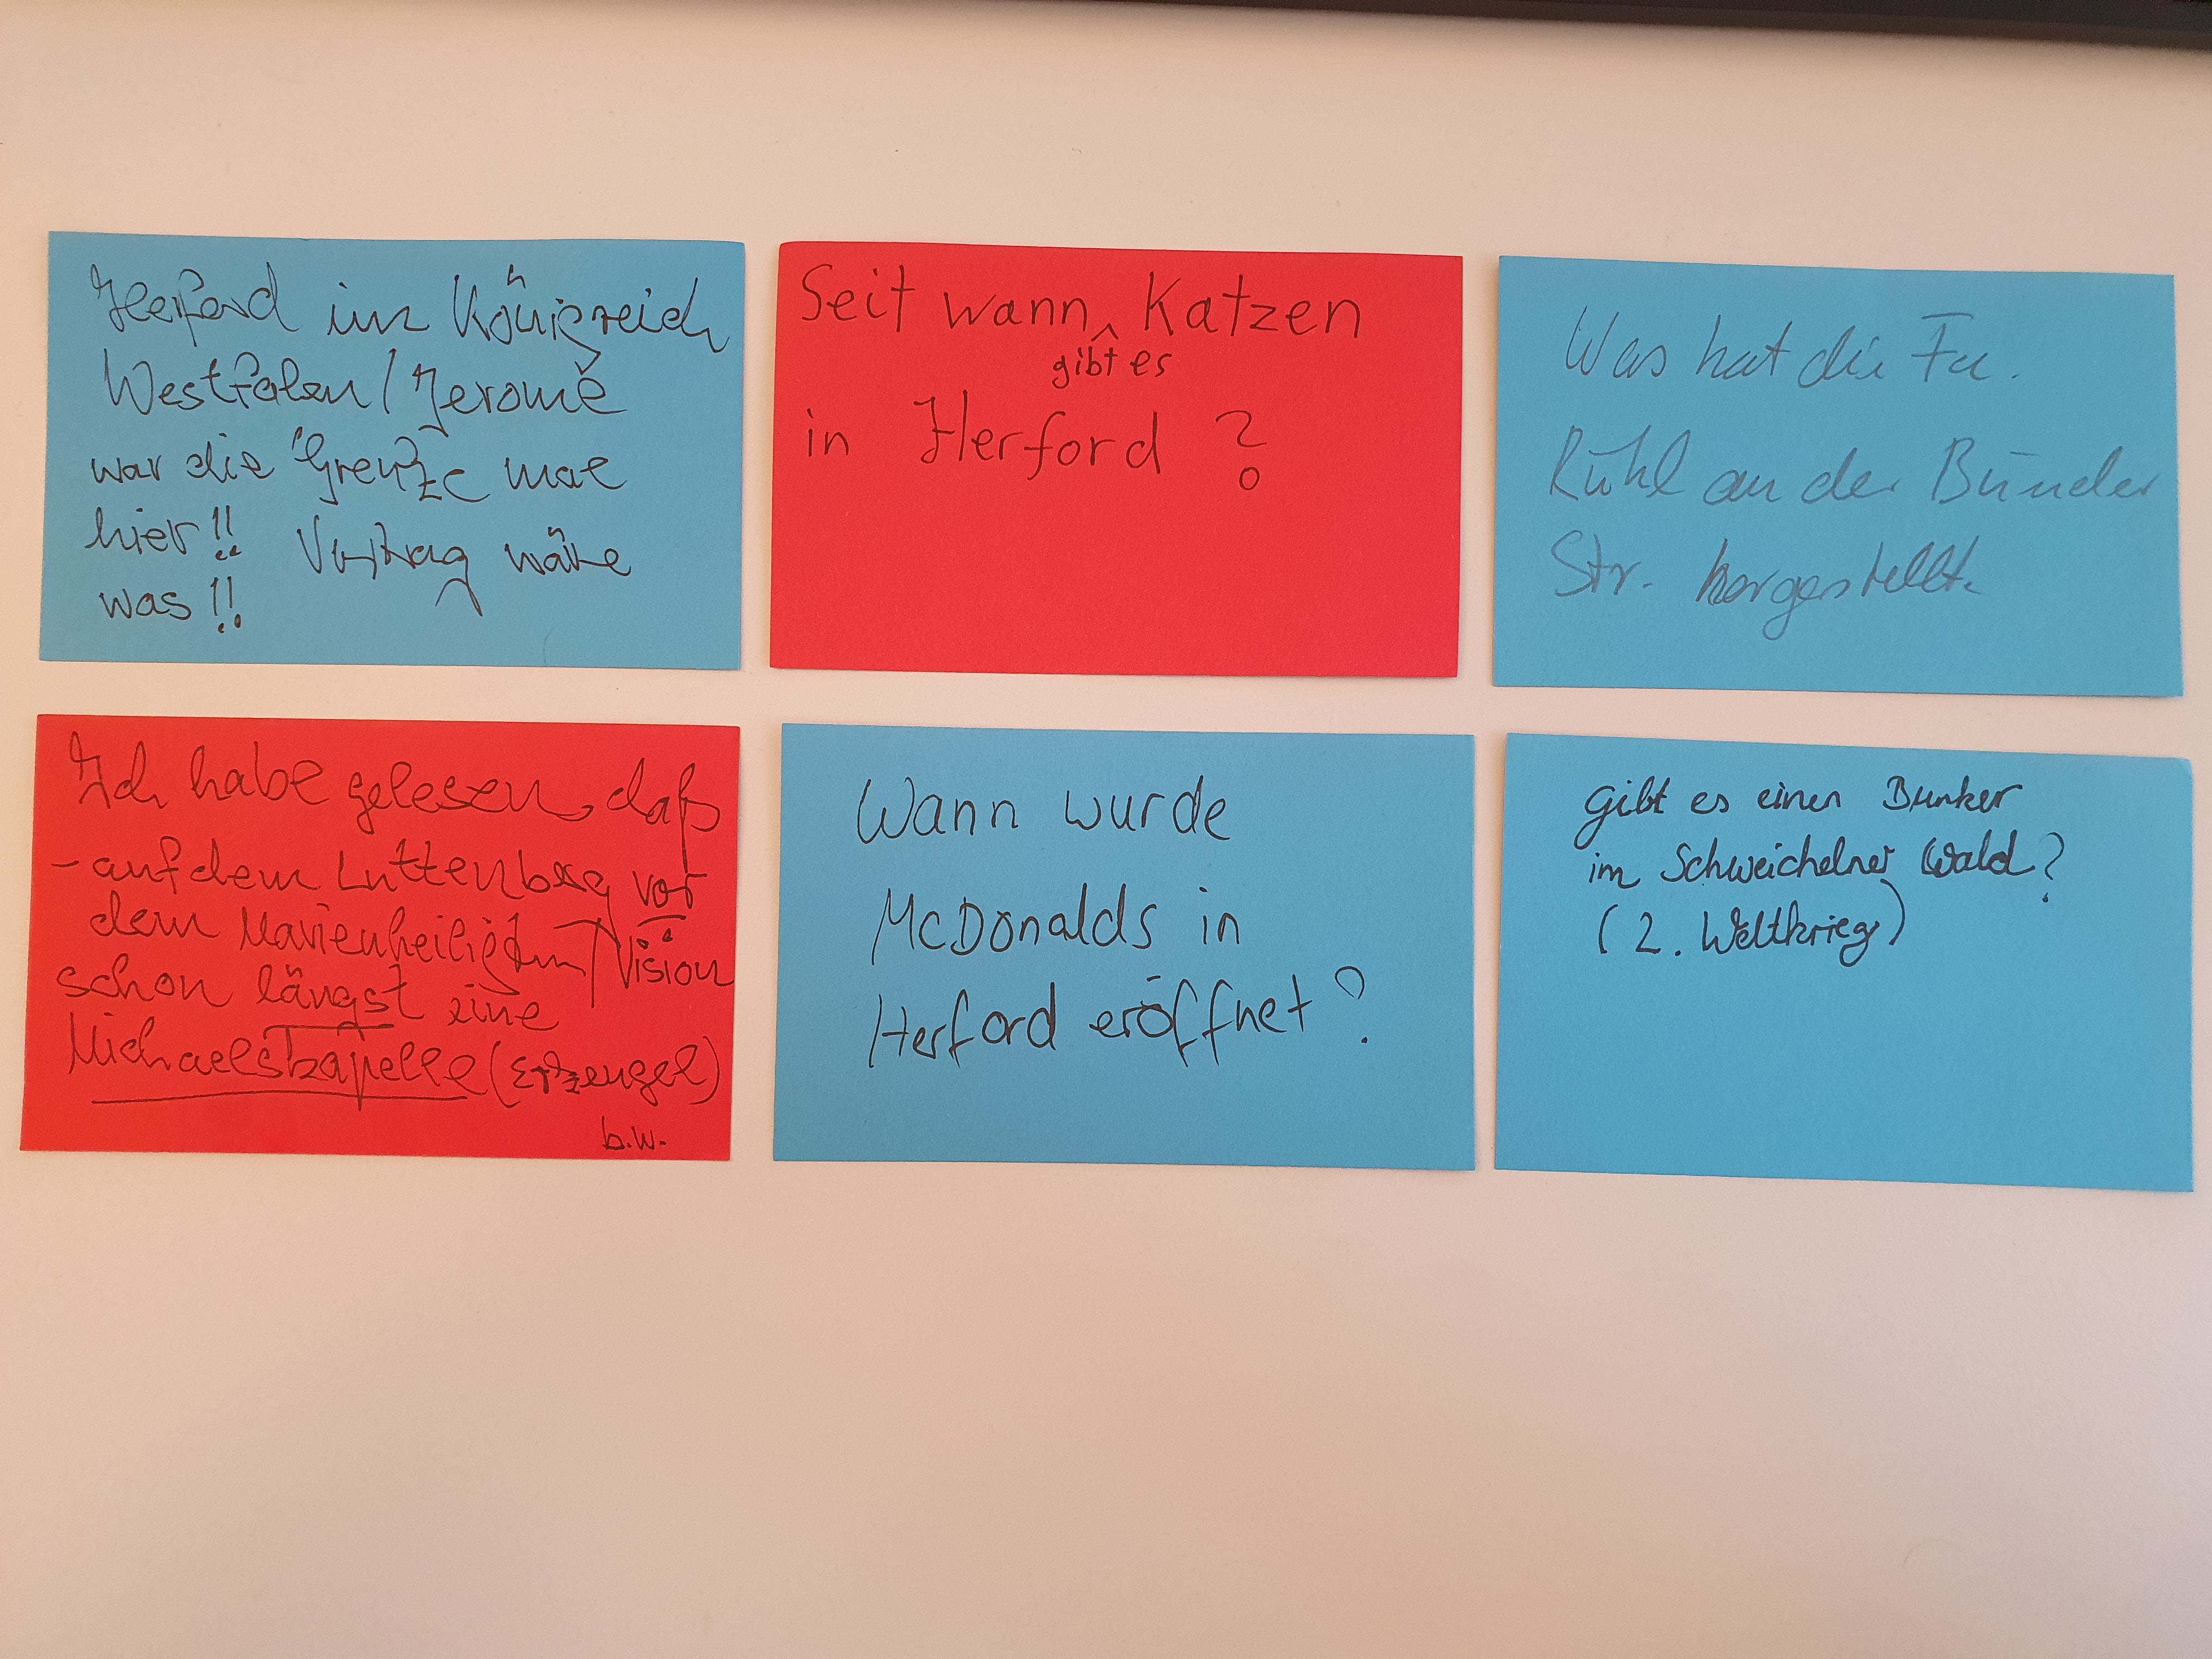 Herford im Königreich
Westfalen/Jeromé
war die Grenze mal
hier!! Vortrag wäre
was!!
Seit wann gibt es Katzen
in Herford?
Was hat die Fa.
Rühl an der Bünder
Str. hergestellt.
Ich habe gelesen, daß
- auf dem Luttenberg vor
dem Marienheiligtum/Vision
schon längst eine
Michaelskapelle (Erzengel)
b.w.
Wann wurde
McDonalds in
Herford eröffnet?
Gibt es einen Bunker
im Schweichelner Wald?
(2. Weltkrieg)